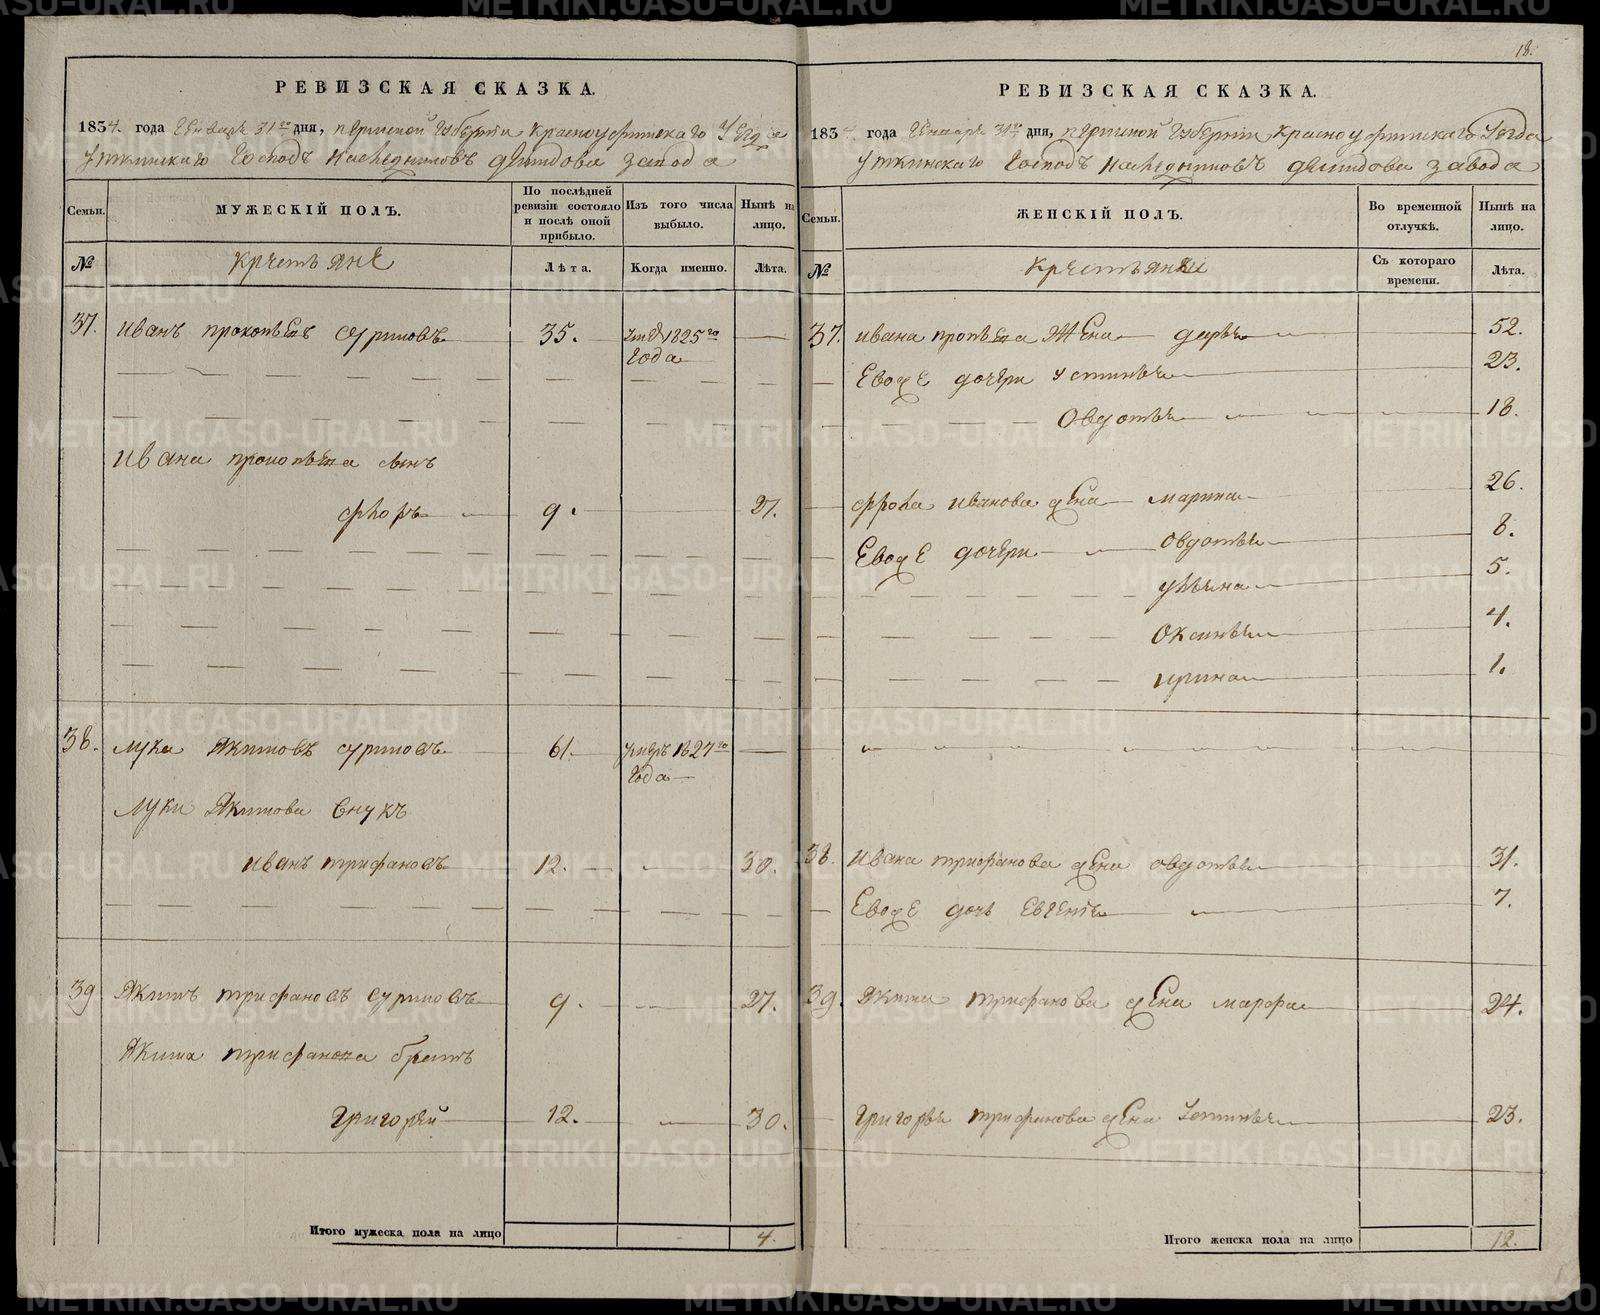 18.
РЕВИЗСКАЯ СКАЗКА.
1834. года Генваря 31го дня, Пермской Губернiи Красноуфимскаго Уезда
Уткинскаго Господъ Наследниковъ Демидова завода
Семьи.
МУЖЕСКIЙ ПОЛЪ.
По послѣдней ревизiи состояло и послѣ оной прибыло.
Изъ того числа выбыло.
Нынѣ на лицо.
№
Крестьяне
Лѣта.
Когда именно.
Лѣта.
37. Иванъ прокопьевъ суриковъ 35. 1825го года —
Ивана прокопьева сынъ
флоръ 9. 27.
38. лука Якимовъ суриковъ 61. умеръ 1827го года —
Луки Якимова внукъ
иванъ трифановъ 12. 30.
39 Якимъ трифановъ суриковъ 9. 27.
Якима трифанова братъ
Григорей 12. 30.
Итого мужеска пола на лицо 4.
РЕВИЗСКАЯ СКАЗКА.
1834 года Генваря 31го дня, Пермской Губернiи Красноуфимскаго Уезда
Уткинскаго Господъ Наследниковъ Демидова завода
Семьи.
ЖЕНСКIЙ ПОЛЪ.
Во временной отлучкѣ.
Нынѣ на лицо.
№
Крестьянки
Съ котораго времени.
Лѣта.
37. ивана жена дарья 52.
Евоже дочери устинья 23.
Овдотья 18.
фрола иванова жена марина 26.
Евоже дочери овдотья 8.
ульяна 5.
Оксинья 4.
ирина 1.
38. ивана трифанова жена овдотья 31.
Евоже дочь Евгенiя 7.
39. Якима трифанова жена марфа 24.
Григорья трифанова жена Устинья 23.
Итого женска пола на лицо 12.
METRIKI.GASO-URAL.RU